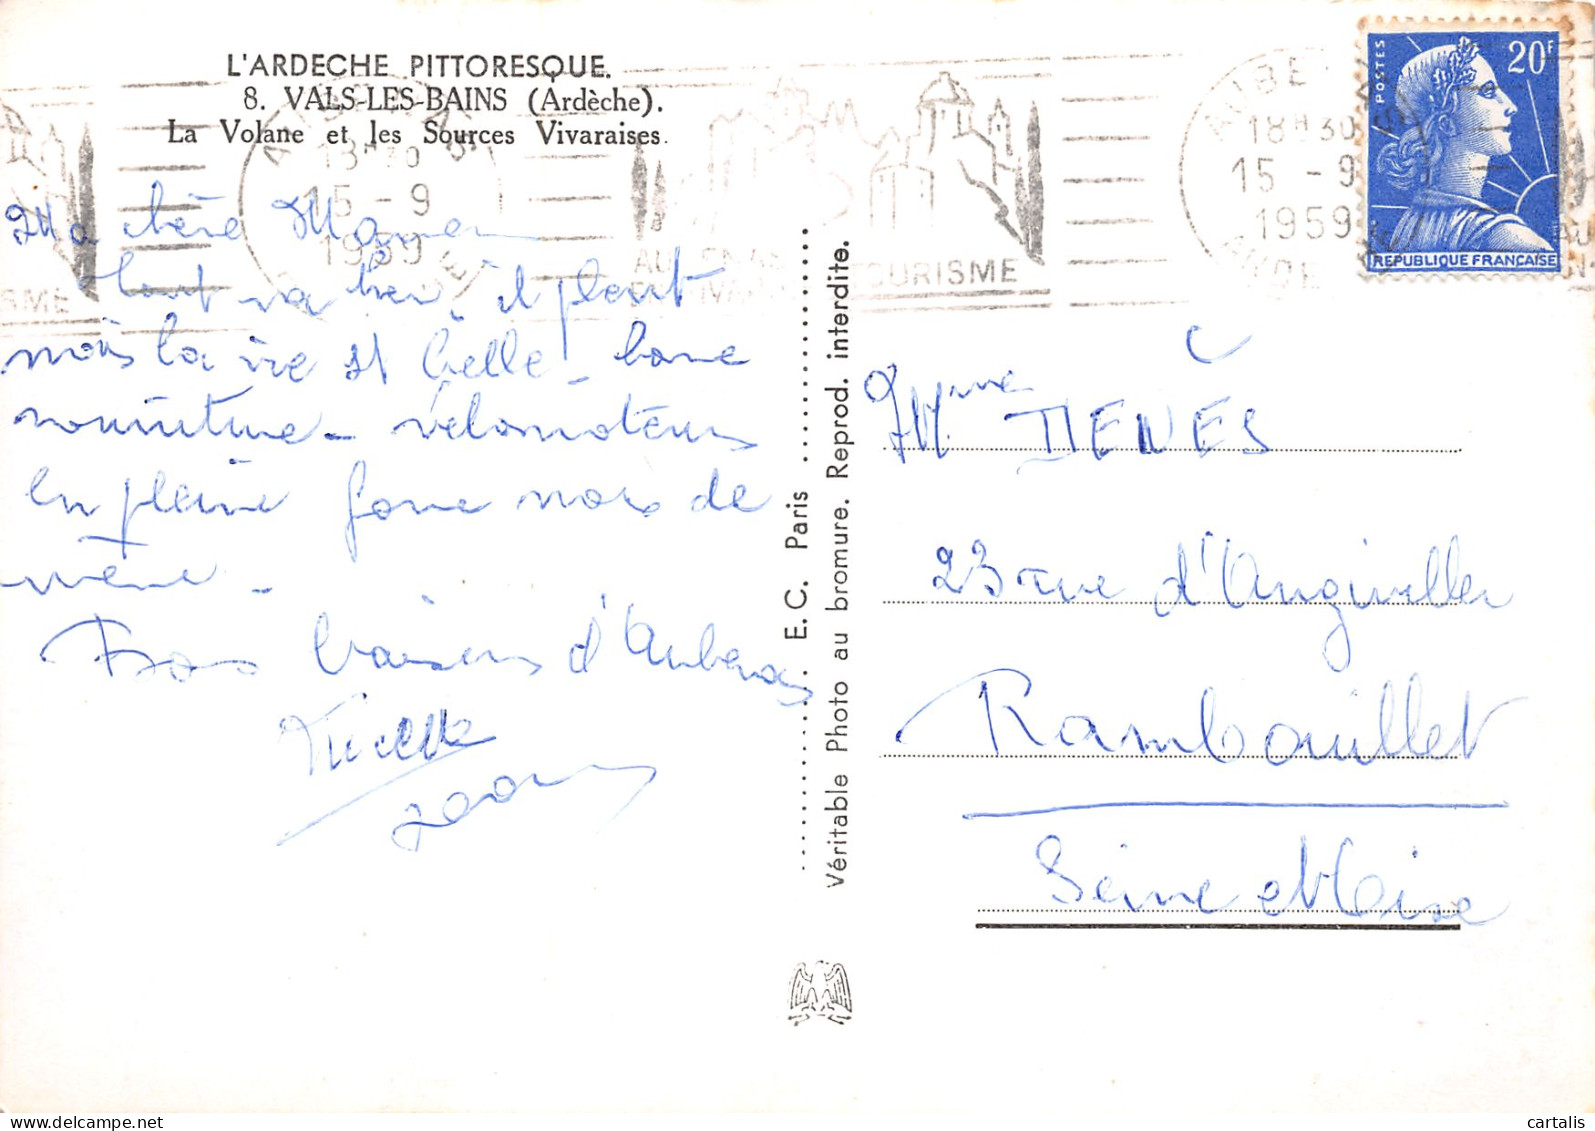 L'ARDECHE PITTORESQUE.
8. VALS-LES-BAINS (Ardèche).
La Volane et les Sources Vivaraises.
Ma chère Maman
tout va bien, il pleut
mais la vie est belle - bonne
nourriture - vélomoteurs
en pleine forme nous de
même -
Gros baisers d'Aubenas
E. C. Paris
Véritable Photo au bromure. Reprod. interdite.
18H30
15 - 9
1959
TOURISME
18H30
15 - 9
1959
ISME
POSTES
20F
REPUBLIQUE FRANÇAISE
Mme DENÈS
23 rue d'Angiviller
Rambouillet
Seine et Oise
cartalis
www.delcampe.net